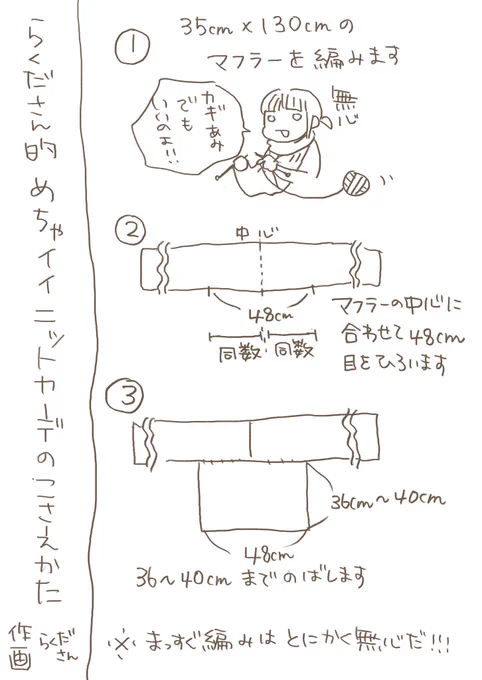 らくださん的 めちゃイイニットカーデのこさえかた
作画 らくださん
①
35cm×130cmの
マフラーを編みます
無心
カギあみ
でも
いいのよ!!
②
中心
48cm
同数・同数
マフラーの中心に
合わせて48cm
目をひろいます
③
36cm〜40cm
48cm
36〜40cmまでのばします
※まっすぐ編みはとにかく無心だ!!!